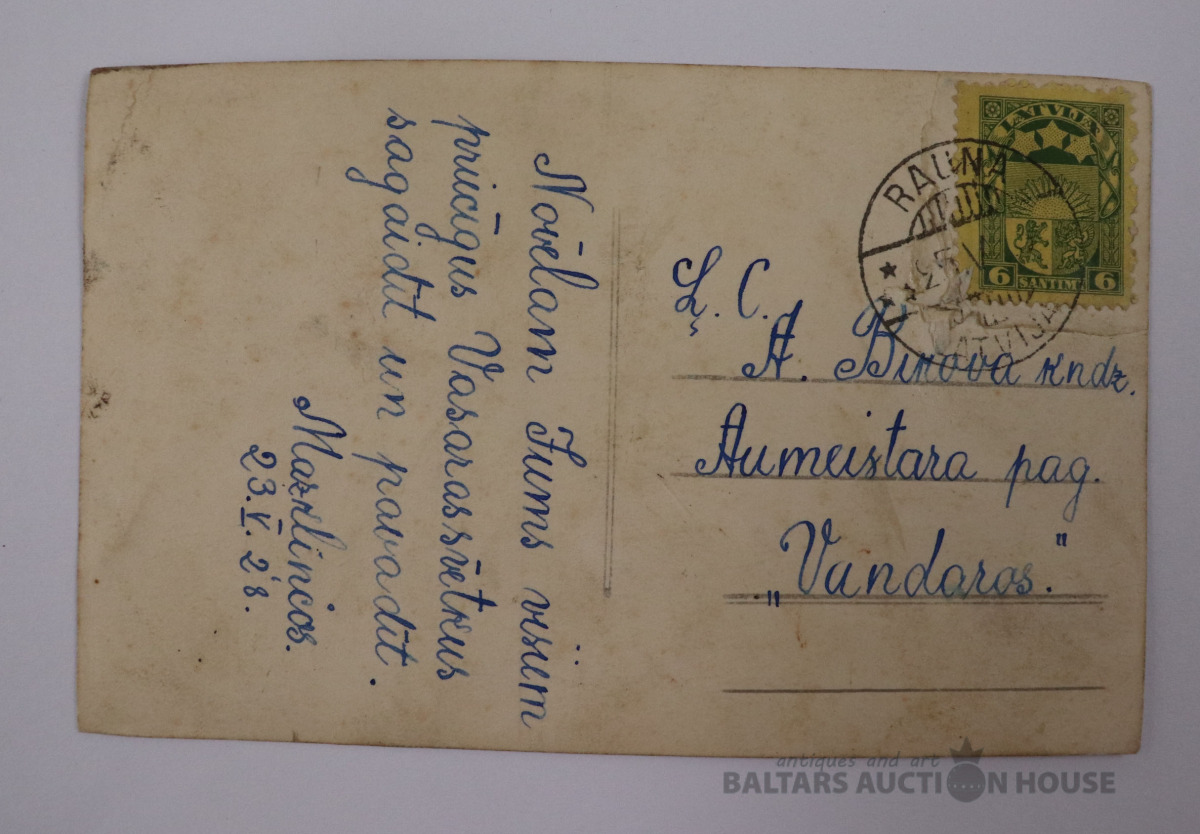 Novēlam Jums visiem
priecīgus Vasarassvētkus
sagaidīt un pavadīt.
Mazklincos.
23.V.28.
LATVIJA
6 SANTIMI 6
RAUNA
LATVIJA
L. C.
A. Birova kndz.
Aumeistara pag.
„Vandaros."
antiques and art
BALTARS AUCTION HOUSE